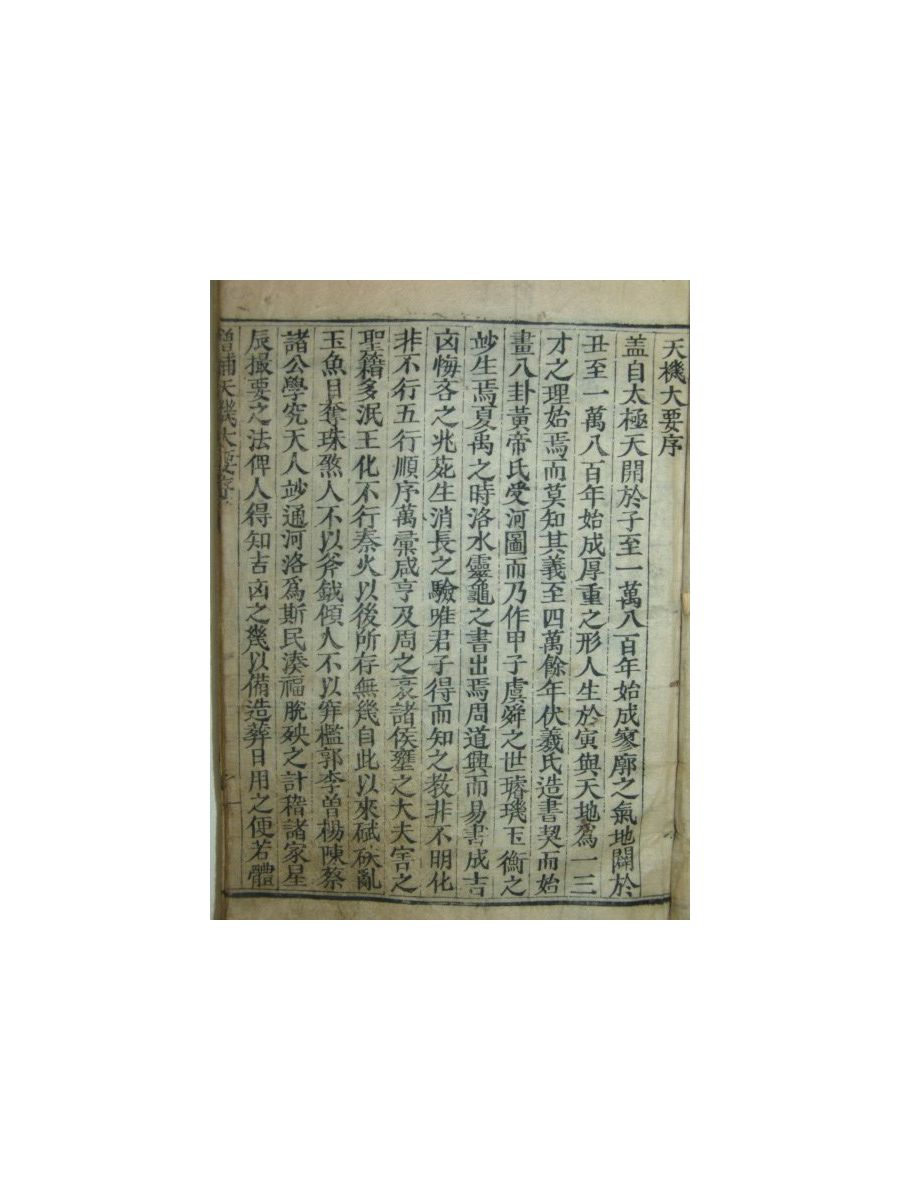 天機大要序
盖自太極天開於子至一萬八百年始成寥廓之氣地闢於
丑至一萬八百年始成厚重之形人生於寅與天地為一三
才之理始焉而莫知其義至四萬餘年伏羲氏造書契而始
畫八卦黃帝氏受河圖而乃作甲子虞舜之世璿璣玉衡之
竗生焉夏禹之時洛水靈龜之書出焉周道興而易書成吉
凶悔吝之兆蓂生消長之驗唯君子得而知之教非不明化
非不行五行順序萬彙咸亨及周之衰諸侯壅之大夫害之
聖籍多泯王化不行秦火以後所存無幾自此以來碔砆亂
玉魚目奪珠煞人不以斧鉞傾人不以穽檻郭李曽楊陳蔡
諸公學究天人竗通河洛爲斯民湊福脫殃之計稽諸家星
辰撮要之法俾人得知吉凶之幾以備造葬日用之便若體
增補天機大要序